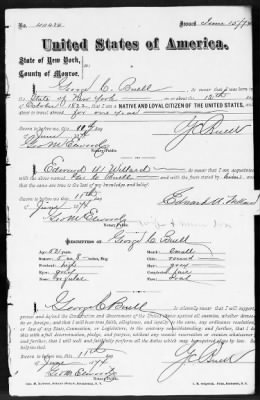 No. 40424 Issued June 15/74
United States of America.
State of New York,
County of Monroe.
I, George C. Buell do swear that I was born in the
State of New York on or about the 12th day
of October, 1822, that I am a NATIVE AND LOYAL CITIZEN OF THE UNITED STATES, and
about to travel abroad for one year
Sworn to before me this 11th day
of June 1874
Geo. M. Elwood
Notary Public.
G C Buell
I, Edward A. Willard do swear that I am acquainted
with the above named Geo. C. Buell and with the facts above stated by him, and that the
same are true to the best of my knowledge and belief.
Sworn to before me this 11th day
of June 1874
Geo. M. Elwood
Notary Public.
Edward A. Willard
DESCRIPTION OF George C Buell
Age: 51 years
Stature: 5 feet 8 inches, Eng.
Forehead: high
Eyes: grey
Nose: regular
Mouth: small
Chin: round
Hair: grey
Complexion: fair
Face: oval
I, George C Buell do solemnly swear that I will support,
protect and defend the Constitution and Government of the United States against all enemies, whether domes-
tic or foreign; and that I will bear true faith, allegiance, and loyalty to the same, any ordinance, resolution,
or law of any State, Convention, or Legislature, to the contrary notwithstanding; and further, that I do this
with a full determination, pledge, and purpose, without any mental reservation or evasion whatsoever;
and further, that I will well and faithfully perform all the duties which may be required of me by law. So
help me God.
Sworn to before me this 11th day
of June 1874
Geo. M. Elwood
Notary Public.
G C Buell